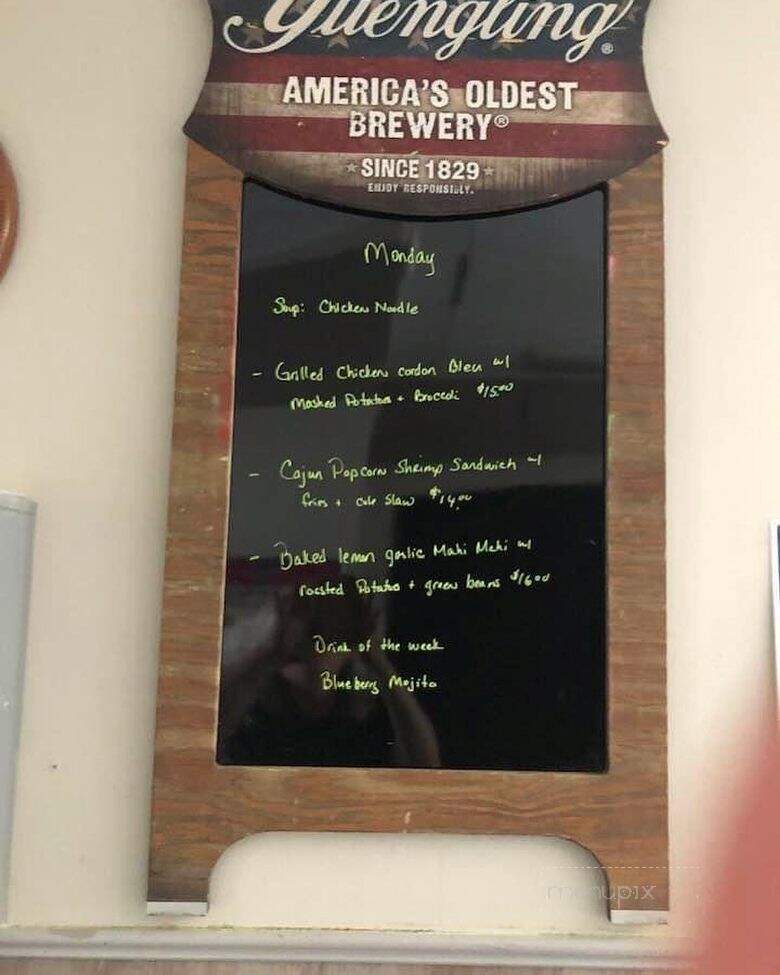 Yuengling®
AMERICA'S OLDEST
BREWERY®
SINCE 1829
ENJOY RESPONSIBLY.
Monday
Soup: Chicken Noodle
- Grilled Chicken cordon Bleu w/
Mashed Potatoes + Broccoli $15.00
- Cajun Popcorn Shrimp Sandwich w/
fries + Cole Slaw $14.00
- Baked lemon garlic Mahi Mahi w/
roasted Potatoes + green beans $16.00
Drink of the week
Blueberry Mojito
menupix